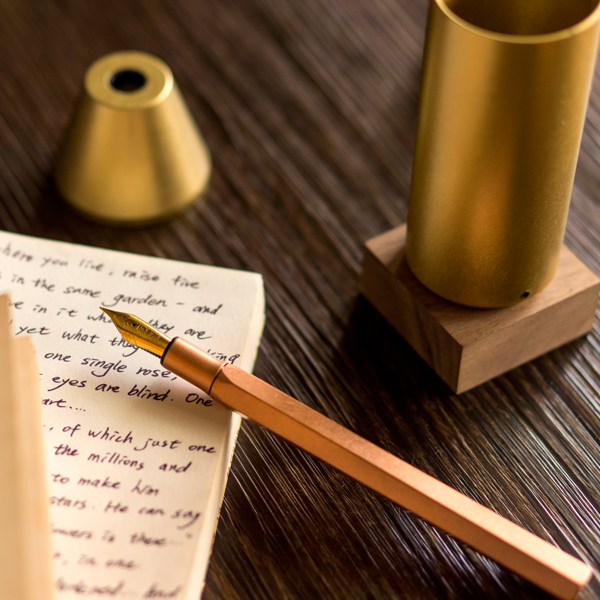 where you live, raise five
in the same garden - and
in it what they are
yet what they
one single rose,
eyes are blind. One
art....
., of which just one
the millions and
to make him
stars. He can say
is there
in one